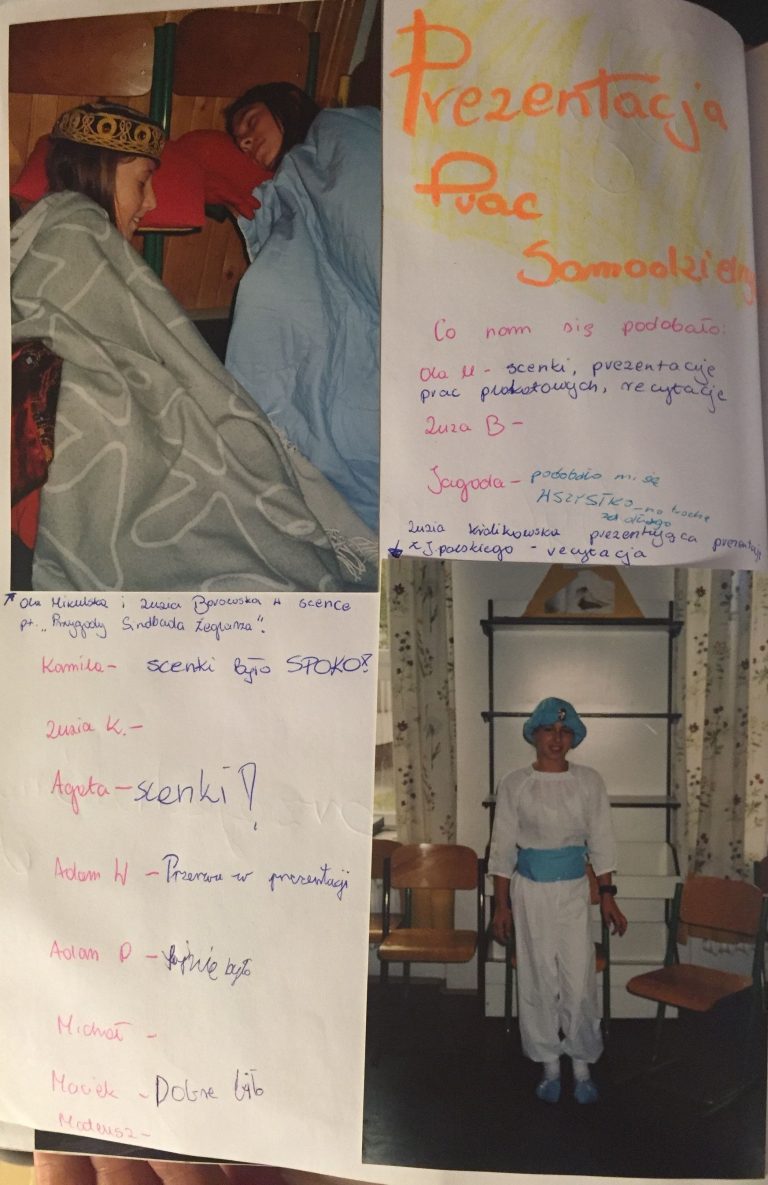 Prezentacja
Prac
Samodzielny
Co nam się podobało:
Ola M - scenki, prezentacje
prac plakatowych, recytacje
Zuza B -
Jagoda - podobało mi się
WSZYSTKO - no trochę
za długo
Zuzia Królikowska prezentująca prezentację
z J. polskiego - recytacja
Ola Mikulska i Zuzia Borowska w scence
pt. "Przygody Sindbada Żeglarza".
Kamila - scenki było SPOKO!
Zuzia K. -
Agata - scenki!
Adam W - Przerwa w prezentacji
Adam P - fajnie było
Michał -
Maciek - Dobre było
Mateusz -